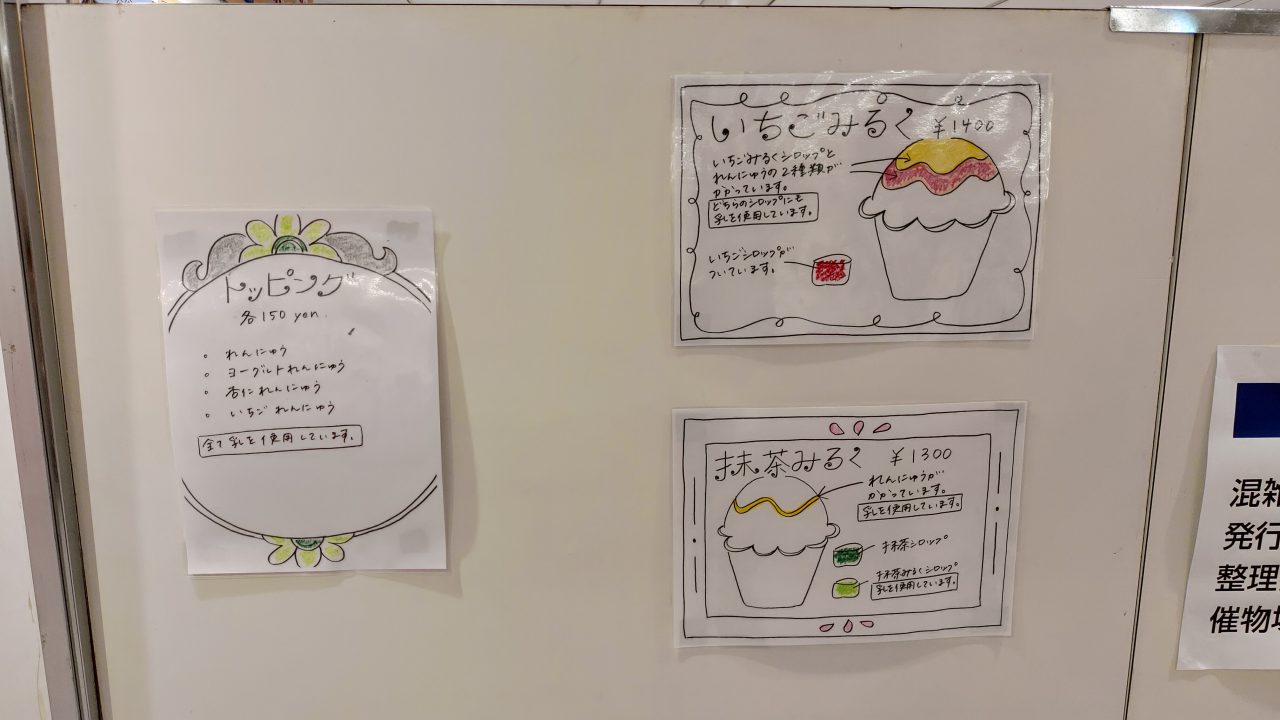 トッピング
各150 yen
• れんにゅう
• ヨーグルトれんにゅう
• 杏仁れんにゅう
• いちごれんにゅう
全て乳を使用しています。
いちごみるく ¥1400
いちごみるくシロップと
れんにゅうの2種類が
かかっています。
どちらのシロップにも
乳を使用しています。
いちごシロップが
ついています。
抹茶みるく ¥1300
れんにゅうが
かかっています。
乳を使用しています。
抹茶シロップ
抹茶みるくシロップ
乳を使用しています。
混雑
発行
整理
催物場